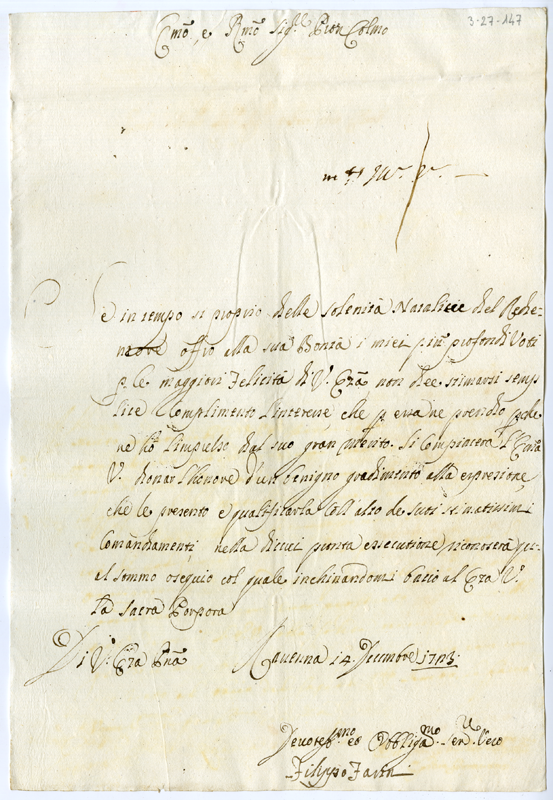 3-27-147
Em̃o e Rm̃o Sig.r Pron Colmo
Se in tempo si proprio delle solenità Natalitie del Rede-
ntore offro alla sua Bontà i miei più profondi Voti
p le maggiori Felicità di V. Em̃a non dee stimarsi semp
lice Complimento l'interesse che p essa ne prendo p che
ne hò l'impulso dal suo gran Merito. Si compiacerà l'
V. donar l'honore d'un benigno gradimento alla espresione
che le presento e qualificarla coll'alto de suoi stimatissimi
Comandamenti, nella di cui punta essecutione riconoscerà
il sommo osequio col quale inchinandomi bacio al Em̃a V.
la Sacra Porpora
Di V. Em̃a Rm̃a Ravenna 14 Decembre 1713.
Devotis.mo et Obbligat.mo Ser.
Filippo